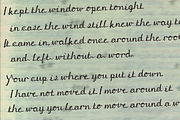 I kept the window open tonight
in case the wind still knew the way t
It came in, walked once around the roo
and left without a word.
Your cup is where you put it down
I have not moved it I move around it
the way you learn to move around a w